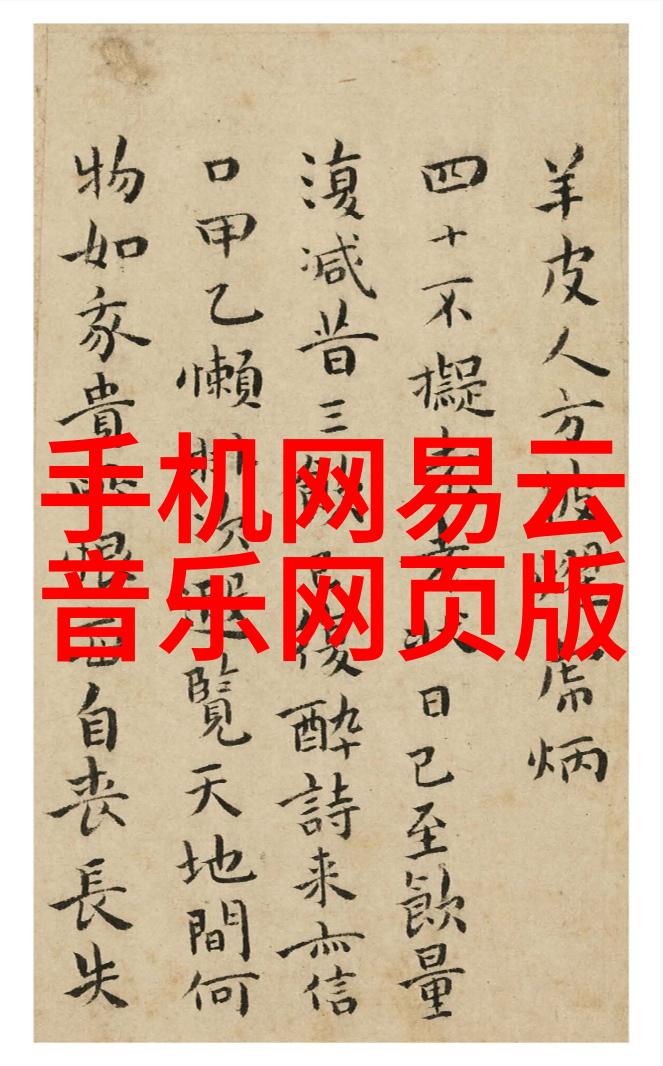 手机网易云
音乐网页版
羊皮人方炳
四十不擬狀日已至飲量
復減昔三後醉詩来亦信
口甲乙懶次覽天地間何
物如貴恨自丧長失